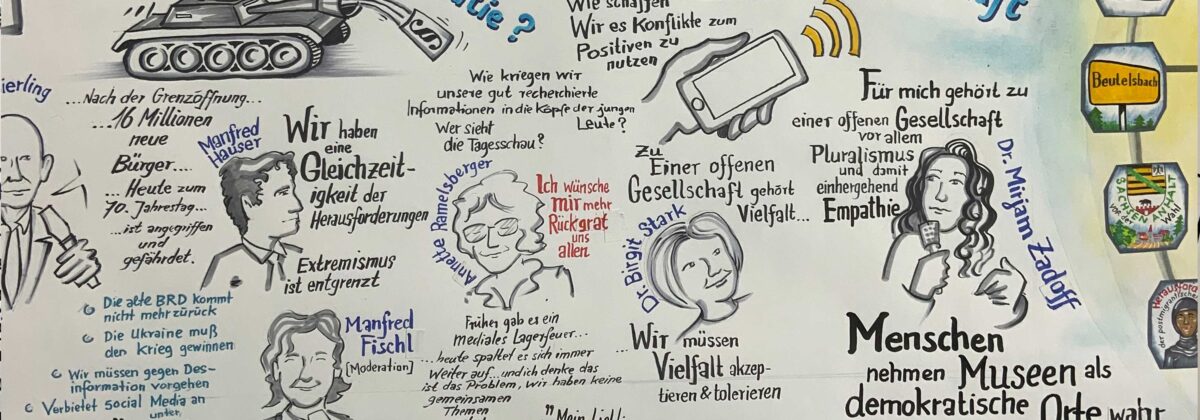 tie?
Wie schaffen
Wir es Konflikte zum
Positiven zu
nutzen
ft
ierling
...Nach der Grenzöffnung...
...16 Millionen
neue
Bürger...
... Heute zum
70. Jahrestag...
...ist angegriffen
und
gefährdet.
Manfred
Hauser
Wir haben
eine
Gleichzeit-
igkeit der
Herausforderungen
Extremismus
ist entgrenzt
Die alte BRD kommt
nicht mehr zurück
Die Ukraine muß
den Krieg gewinnen
Wir müssen gegen Des-
information vorgehen
Verbietet Social Media an
unter
Manfred
Fischl
[Moderation]
Wie kriegen wir
unsere gut recherchierte
Informationen in die Köpfe der jungen
Leute?
Wer sieht
die Tagesschau?
Annette Ramelsberger
Ich wünsche
mir mehr
Rückgrat
uns
allen
Früher gab es ein
mediales Lagerfeuer...
...heute spaltet es sich immer
Weiter auf...und ich denke das
ist das Problem, wir haben keine
gemeinsamen
Themen
Zu
Einer offenen
Gesellschaft gehört
Vielfalt...
Dr. Birgit Stark
... Wir müssen
Vielfalt akzep-
tieren & tolerieren
Für mich gehört zu
einer offenen Gesellschaft
vor allem
Pluralismus
und damit
einhergehend
Empathie
Dr. Mirjam Zadoff
Menschen
nehmen Museen als
demokratische Orte wahr
Beutelsbach
SACHSEN ANHALT
vor der Wahl
Herausford
der postmigrantische